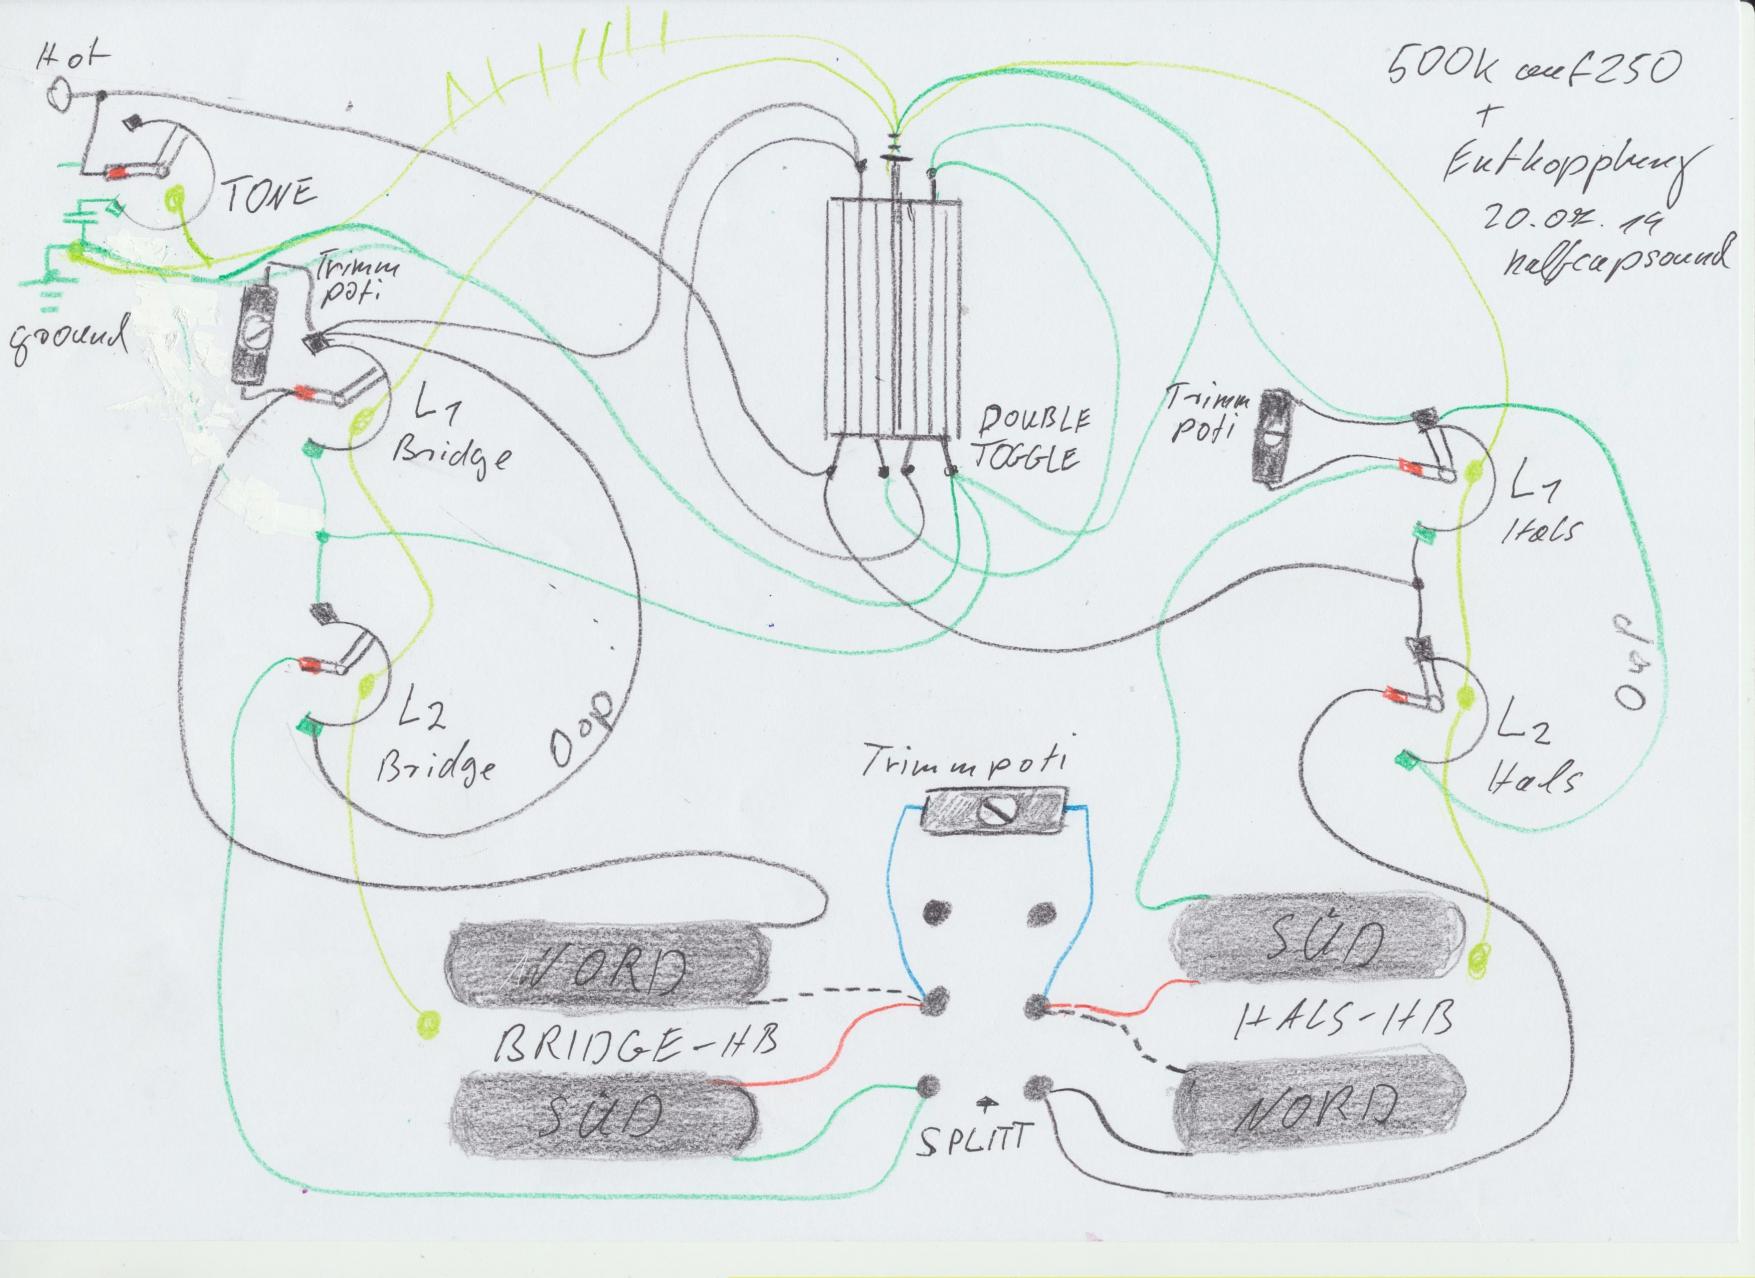 Hot
TONE
ground
Trimm
poti
L1
Bridge
L2
Bridge
Oop
DOUBLE
TOGGLE
500k auf 250
+
Entkopplung
20.07.19
halfcapsound
Trimm
poti
L1
Hals
L2
Hals
Oop
Trimmpoti
NORD
BRIDGE-HB
SÜD
SPLITT
SÜD
HALS-HB
NORD